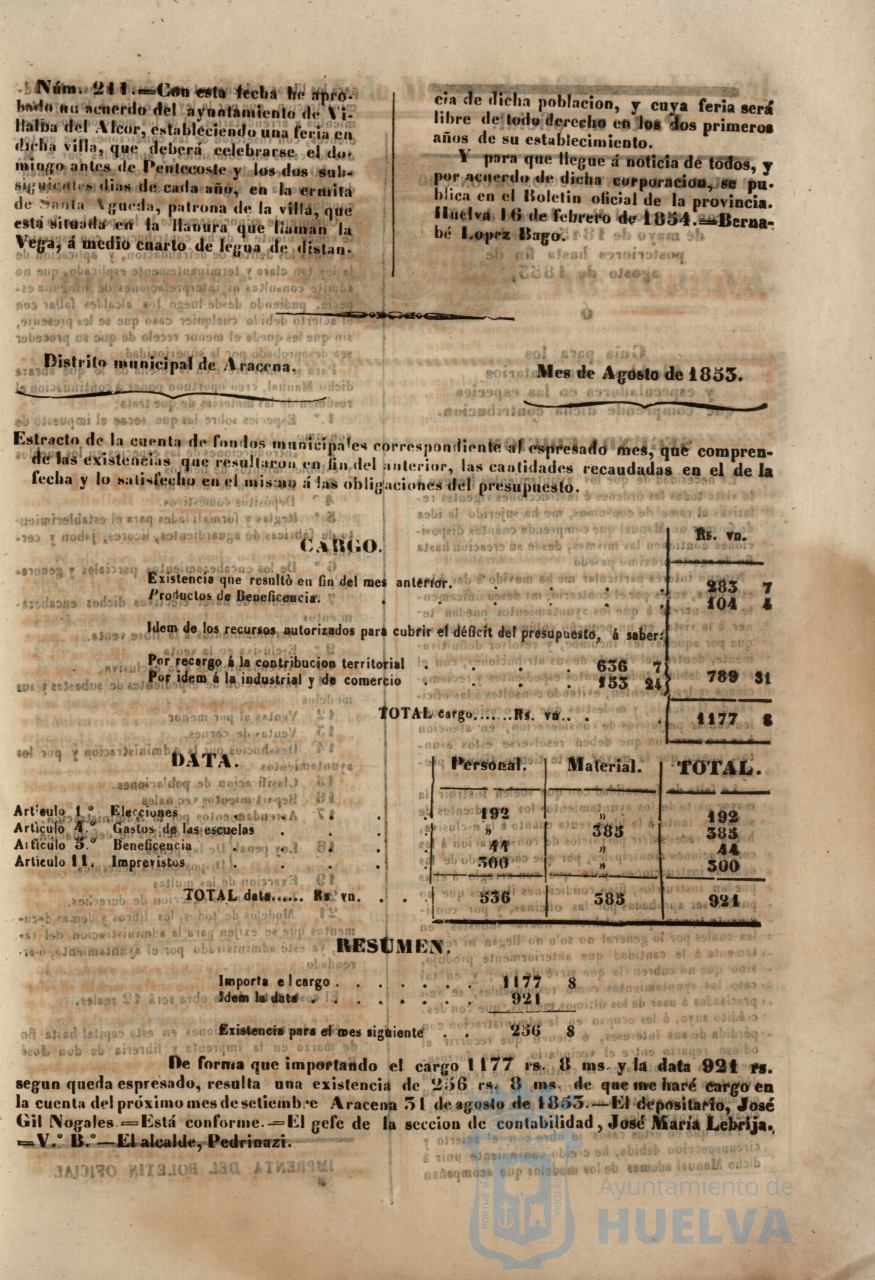 Núm. 211.=Con esta fecha he apro-
bado un acuerdo del ayuntamiento de Vi-
llalba del Alcor, estableciendo una feria en
dicha villa, que deberá celebrarse el do-
mingo antes de Pentecoste y los dos sub-
siguientes dias de cada año, en la ermita
de Santa Agueda, patrona de la villa, que
está situada en la llanura que llaman la
Vega, á medio cuarto de legua de distan-
cia de dicha poblacion, y cuya feria será
libre de todo derecho en los dos primeros
años de su establecimiento.
Y para que llegue á noticia de todos, y
por acuerdo de dicha corporacion, se pu-
blica en el Boletin oficial de la provincia.
Huelva 16 de febrero de 1854.=Berna-
bé Lopez Bago.
Distrito municipal de Aracena.
Mes de Agosto de 1853.
Estracto de la cuenta de fondos municipales correspondiente al espresado mes, que compren-
de las existencias que resultaron en fin del anterior, las cantidades recaudadas en el de la
fecha y lo satisfecho en el mismo á las obligaciones del presupuesto.
CARGO.
Rs. vn.
Existencia que resultò en fin del mes anterior. . . . . 283 7
Productos de Beneficencia. . . . . . 104 4
Idem de los recursos autorizados para cubrir el déficit del presupuesto, á saber:
Por recargo á la contribucion territorial . . . . 636 7
Por idem á la industrial y de comercio . . . . 153 24
789 31
TOTAL cargo.......Rs. vn.. . . 1177 8
DATA.
Personal. Material. TOTAL.
Artículo 1.º Elecciones . . . . 192 » 192
Articulo 4.º Gastos de las escuelas . . . . » 385 385
Artículo 5.º Beneficencia . . . . 44 » 44
Articulo 11. Imprevistos . . . . 300 » 300
TOTAL data...... Rs. vn. . . . 536 385 921
RESUMEN.
Importa el cargo . . . . . . . 1177 8
Idem la data . . . . . . . . 921
Existencia para el mes siguiente . . 256 8
De forma que importando el cargo 1177 rs. 8 ms. y la data 921 rs.
segun queda espresado, resulta una existencia de 256 rs. 8 ms. de que me haré cargo en
la cuenta del próximo mes de setiembre Aracena 31 de agosto de 1853.—El depositario, José
Gil Nogales.=Está conforme.=El gefe de la seccion de contabilidad, José María Lebrija.
=V.º B.º—El alcalde, Pedrinazi.
Ayuntamiento de
HUELVA